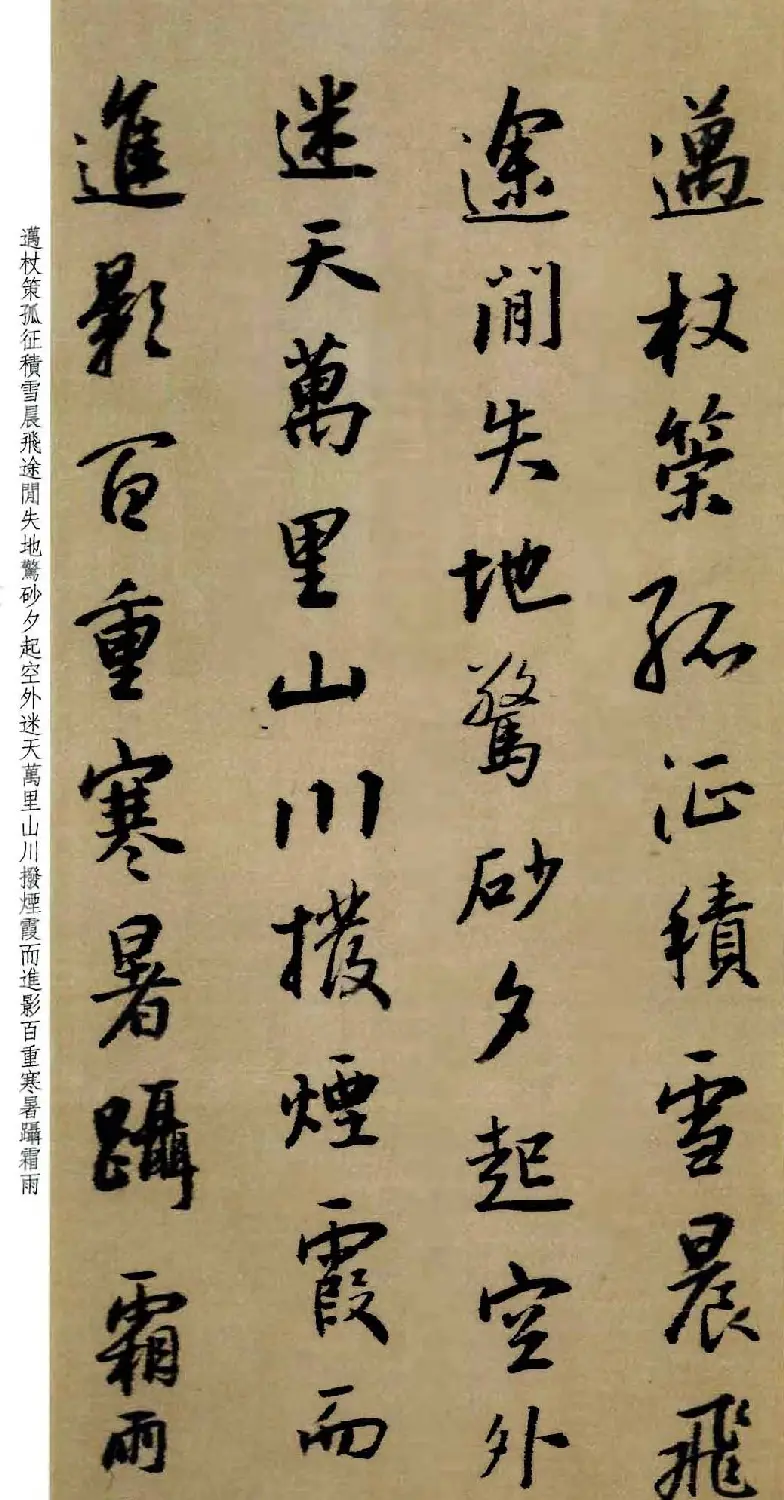 邁杖策孤征積雪晨飛
途閒失地驚砂夕起空外
迷天萬里山川撥煙霞而
進影百重寒暑躡霜雨
邁杖策孤征積雪晨飛途閒失地驚砂夕起空外迷天萬里山川撥煙霞而進影百重寒暑躡霜雨